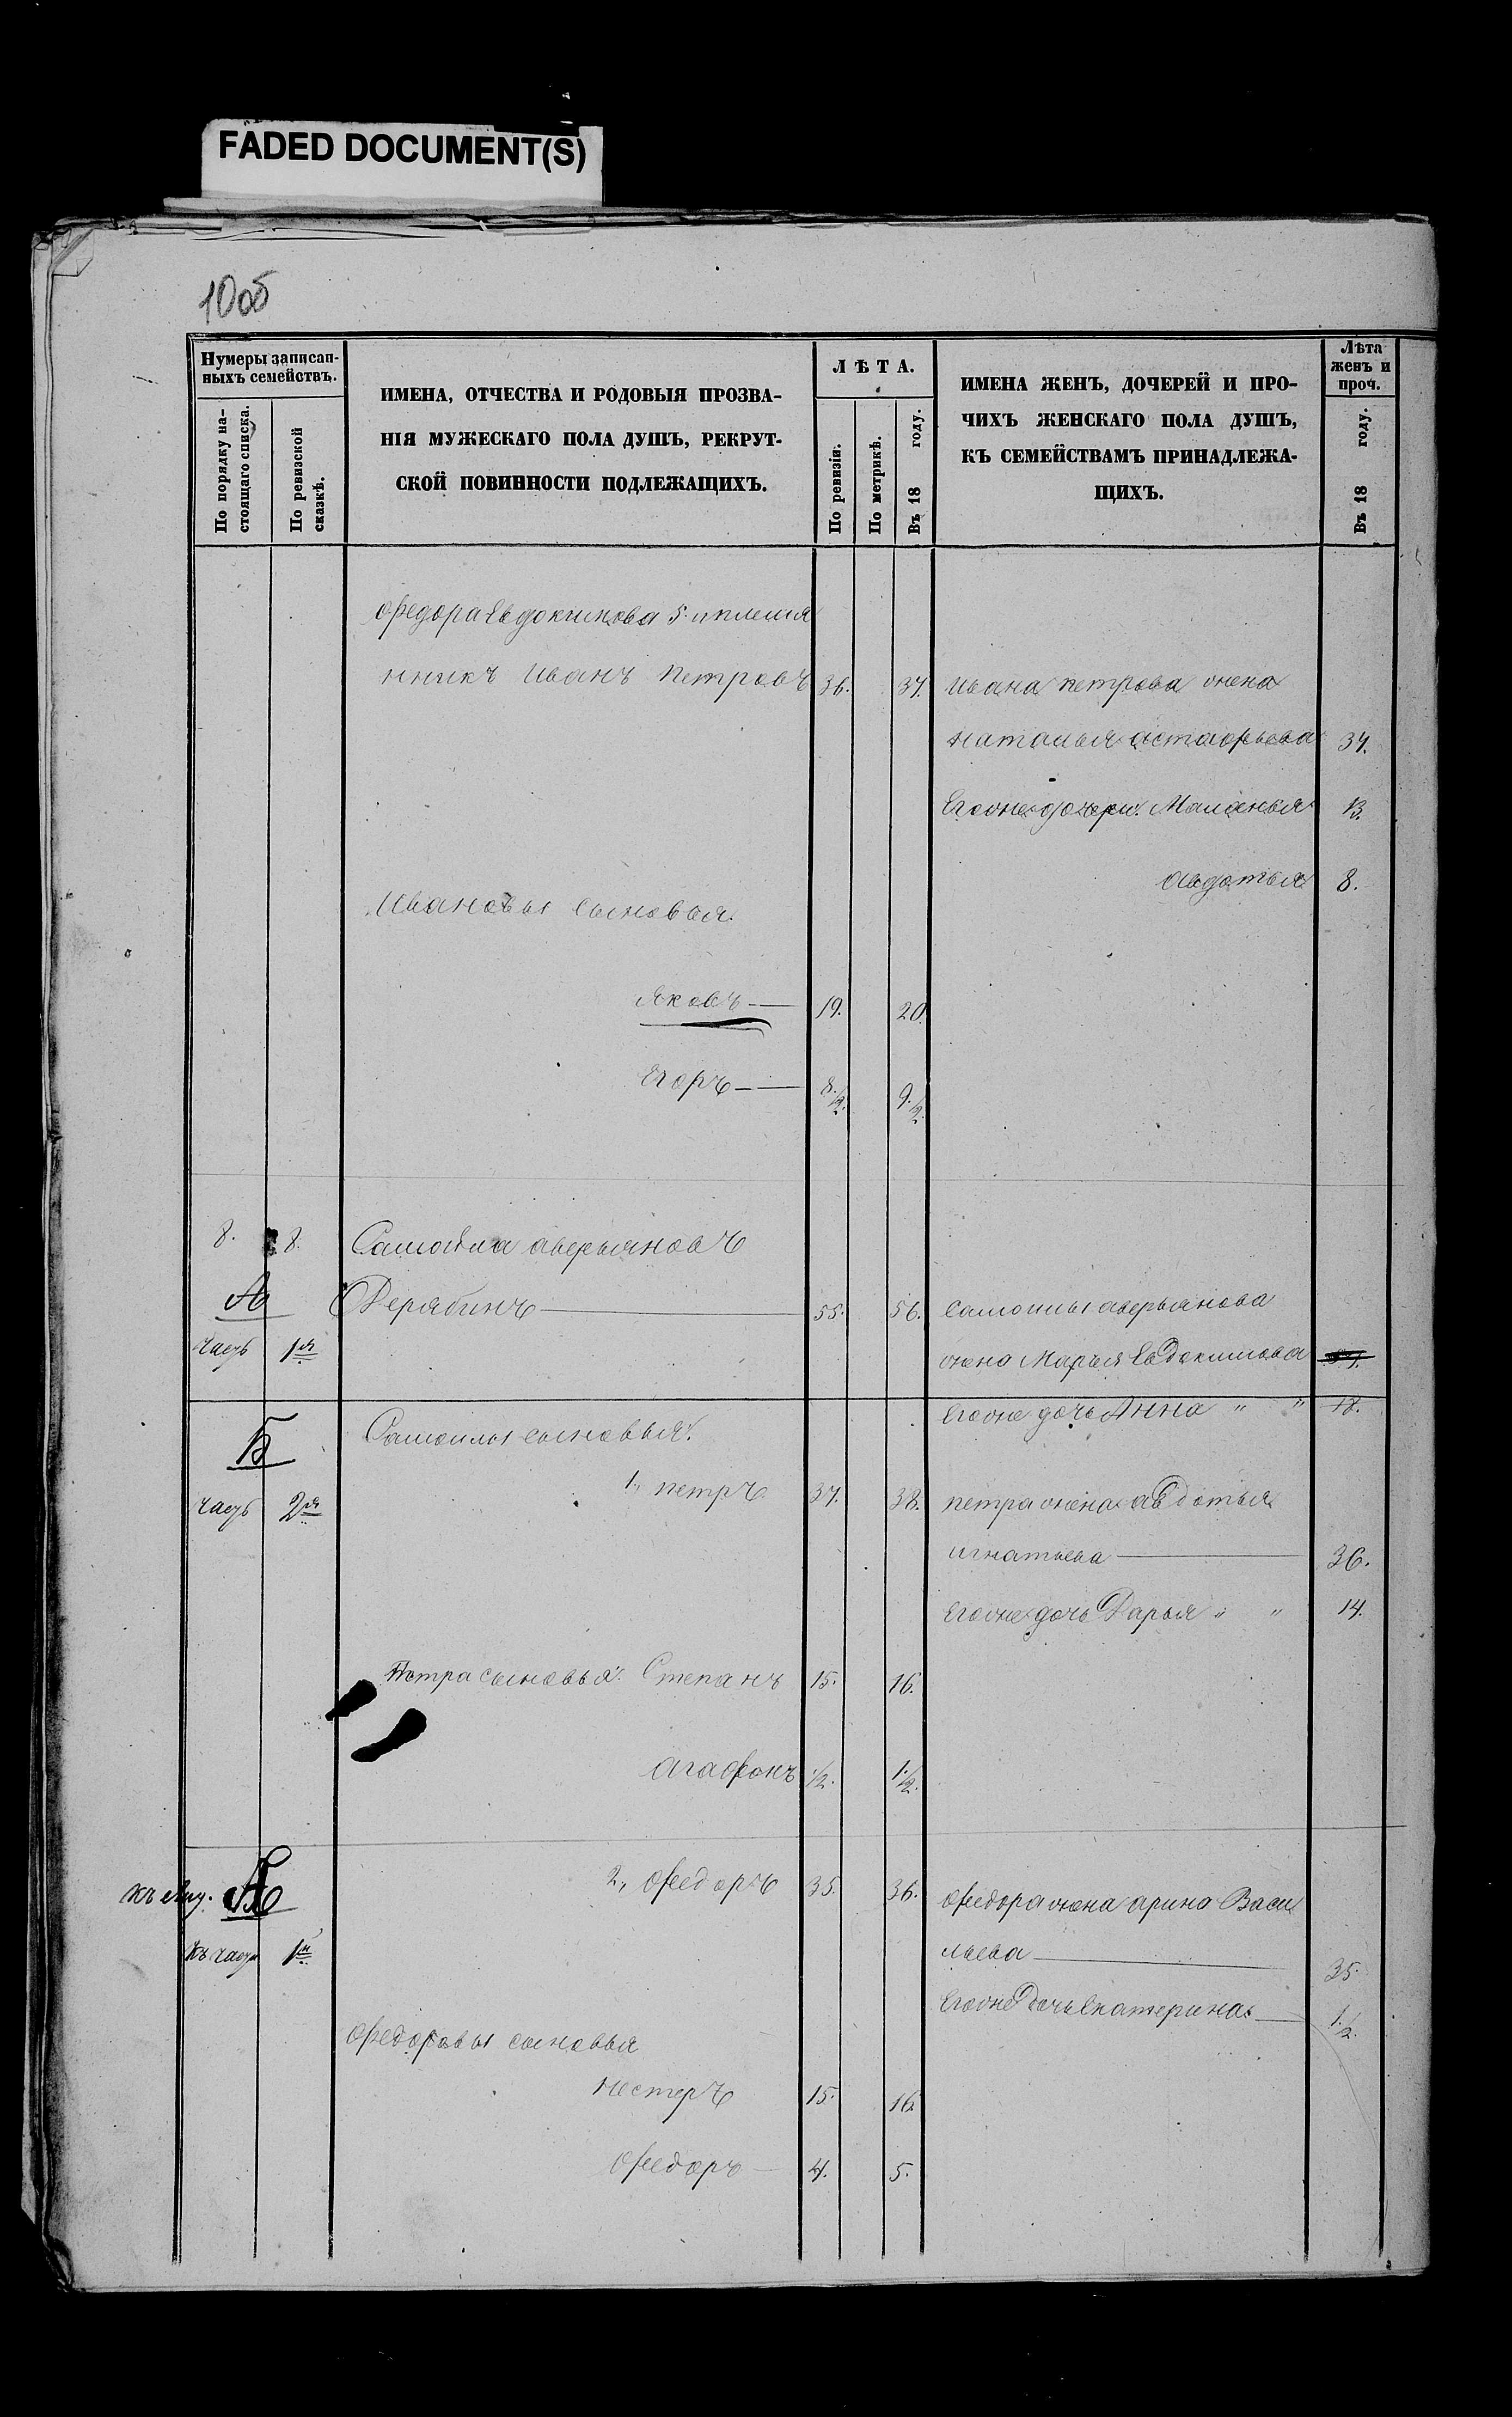 FADED DOCUMENT(S)
10об
Нумеры записан-
ныхъ семействъ.
По порядку на-
стоящаго списка.
По ревизской
сказкѣ.
ИМЕНА, ОТЧЕСТВА И РОДОВЫЯ ПРОЗВА-
НІЯ МУЖЕСКАГО ПОЛА ДУШЪ, РЕКРУТ-
СКОЙ ПОВИННОСТИ ПОДЛЕЖАЩИХЪ.
ЛѢТА.
По ревизіи.
По метрикѣ.
Въ 18 году.
ИМЕНА ЖЕНЪ, ДОЧЕРЕЙ И ПРО-
ЧИХЪ ЖЕНСКАГО ПОЛА ДУШЪ,
КЪ СЕМЕЙСТВАМЪ ПРИНАДЛЕЖА-
ЩИХЪ.
Лѣта
женъ и
проч.
Въ 18 году.
Федора Евдокимова 5. и племя
нникъ Иванъ Петровъ 36. 37. Ивана петрова жена
наталья астафьева 37.
Егоже дочери: Маланья 13.
авдотья 8.
Ивановы сыновья.
Яковъ — 19. 20.
Егоръ — 8.½. 9.½.
8. 8. Самойла аверьяновъ
А Дерябинъ 55. 56. Самоилы аверьянова
часть 1я жена Марья Евдокимова 57.
Егоже дочь Анна " " 18.
Б Самоилы сыновья:
1, петръ 37. 38. петра жена авдотья
часть 2я
игнатьева 36.
Егоже дочь Дарья " " 14.
Петра сыновья: Степанъ 15. 16.
агафонъ ½. 1.½.
къ лит. А 2, Федоръ 35. 36. Федора жена арина Васи
къ части 1й льева 35.
Егоже Дочь Екатерина 1.½.
Федоровы сыновья
нестеръ 15. 16.
Федоръ 4. 5.